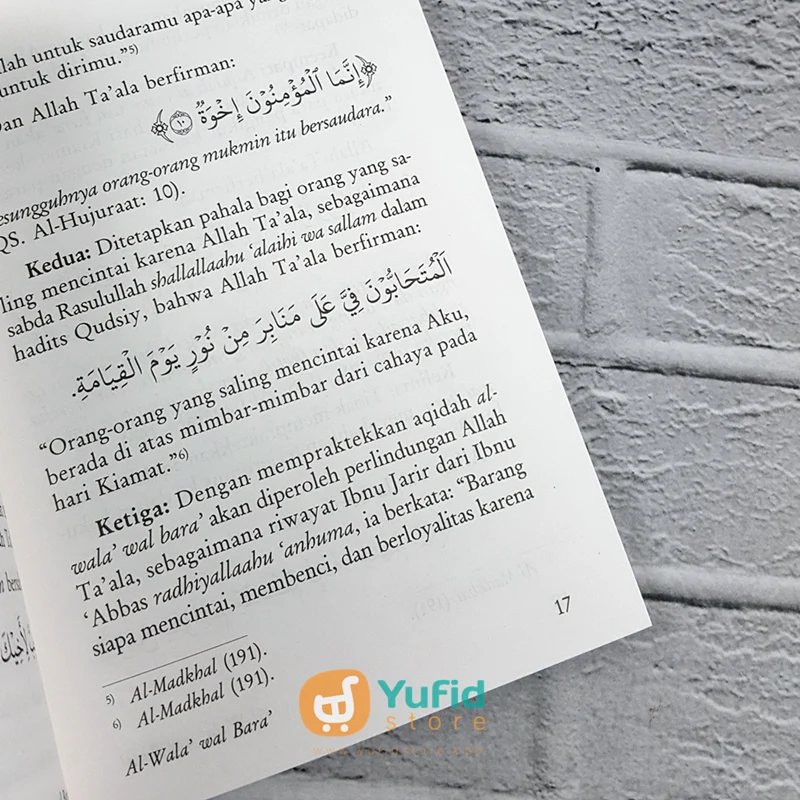 untuk saudaramu apa-apa
untuk dirimu.”5)
Allah Ta’ala berfirman:
﴿إِنَّمَا الْمُؤْمِنُوْنَ إِخْوَةٌ ۝١٠﴾
orang-orang mukmin itu bersaudara.”
QS. Al-Hujuraat: 10).
Kedua: Ditetapkan pahala bagi orang yang sa-
ling mencintai karena Allah Ta’ala, sebagaimana
sabda Rasulullah shallallaahu ‘alaihi wa sallam dalam
hadits Qudsiy, bahwa Allah Ta’ala berfirman:
اَلْمُتَحَابُّوْنَ فِيَّ عَلَى مَنَابِرَ مِنْ نُوْرٍ يَوْمَ الْقِيَامَةِ.
“Orang-orang yang saling mencintai karena Aku,
berada di atas mimbar-mimbar dari cahaya pada
hari Kiamat.”6)
Ketiga: Dengan mempraktekkan aqidah al-
wala’ wal bara’ akan diperoleh perlindungan Allah
Ta’ala, sebagaimana riwayat Ibnu Jarir dari Ibnu
‘Abbas radhiyallaahu ‘anhuma, ia berkata: “Barang
siapa mencintai, membenci, dan berloyalitas karena
5) Al-Madkhal (191).
6) Al-Madkhal (191).
Al-Wala’ wal Bara’
17
Yufid
store